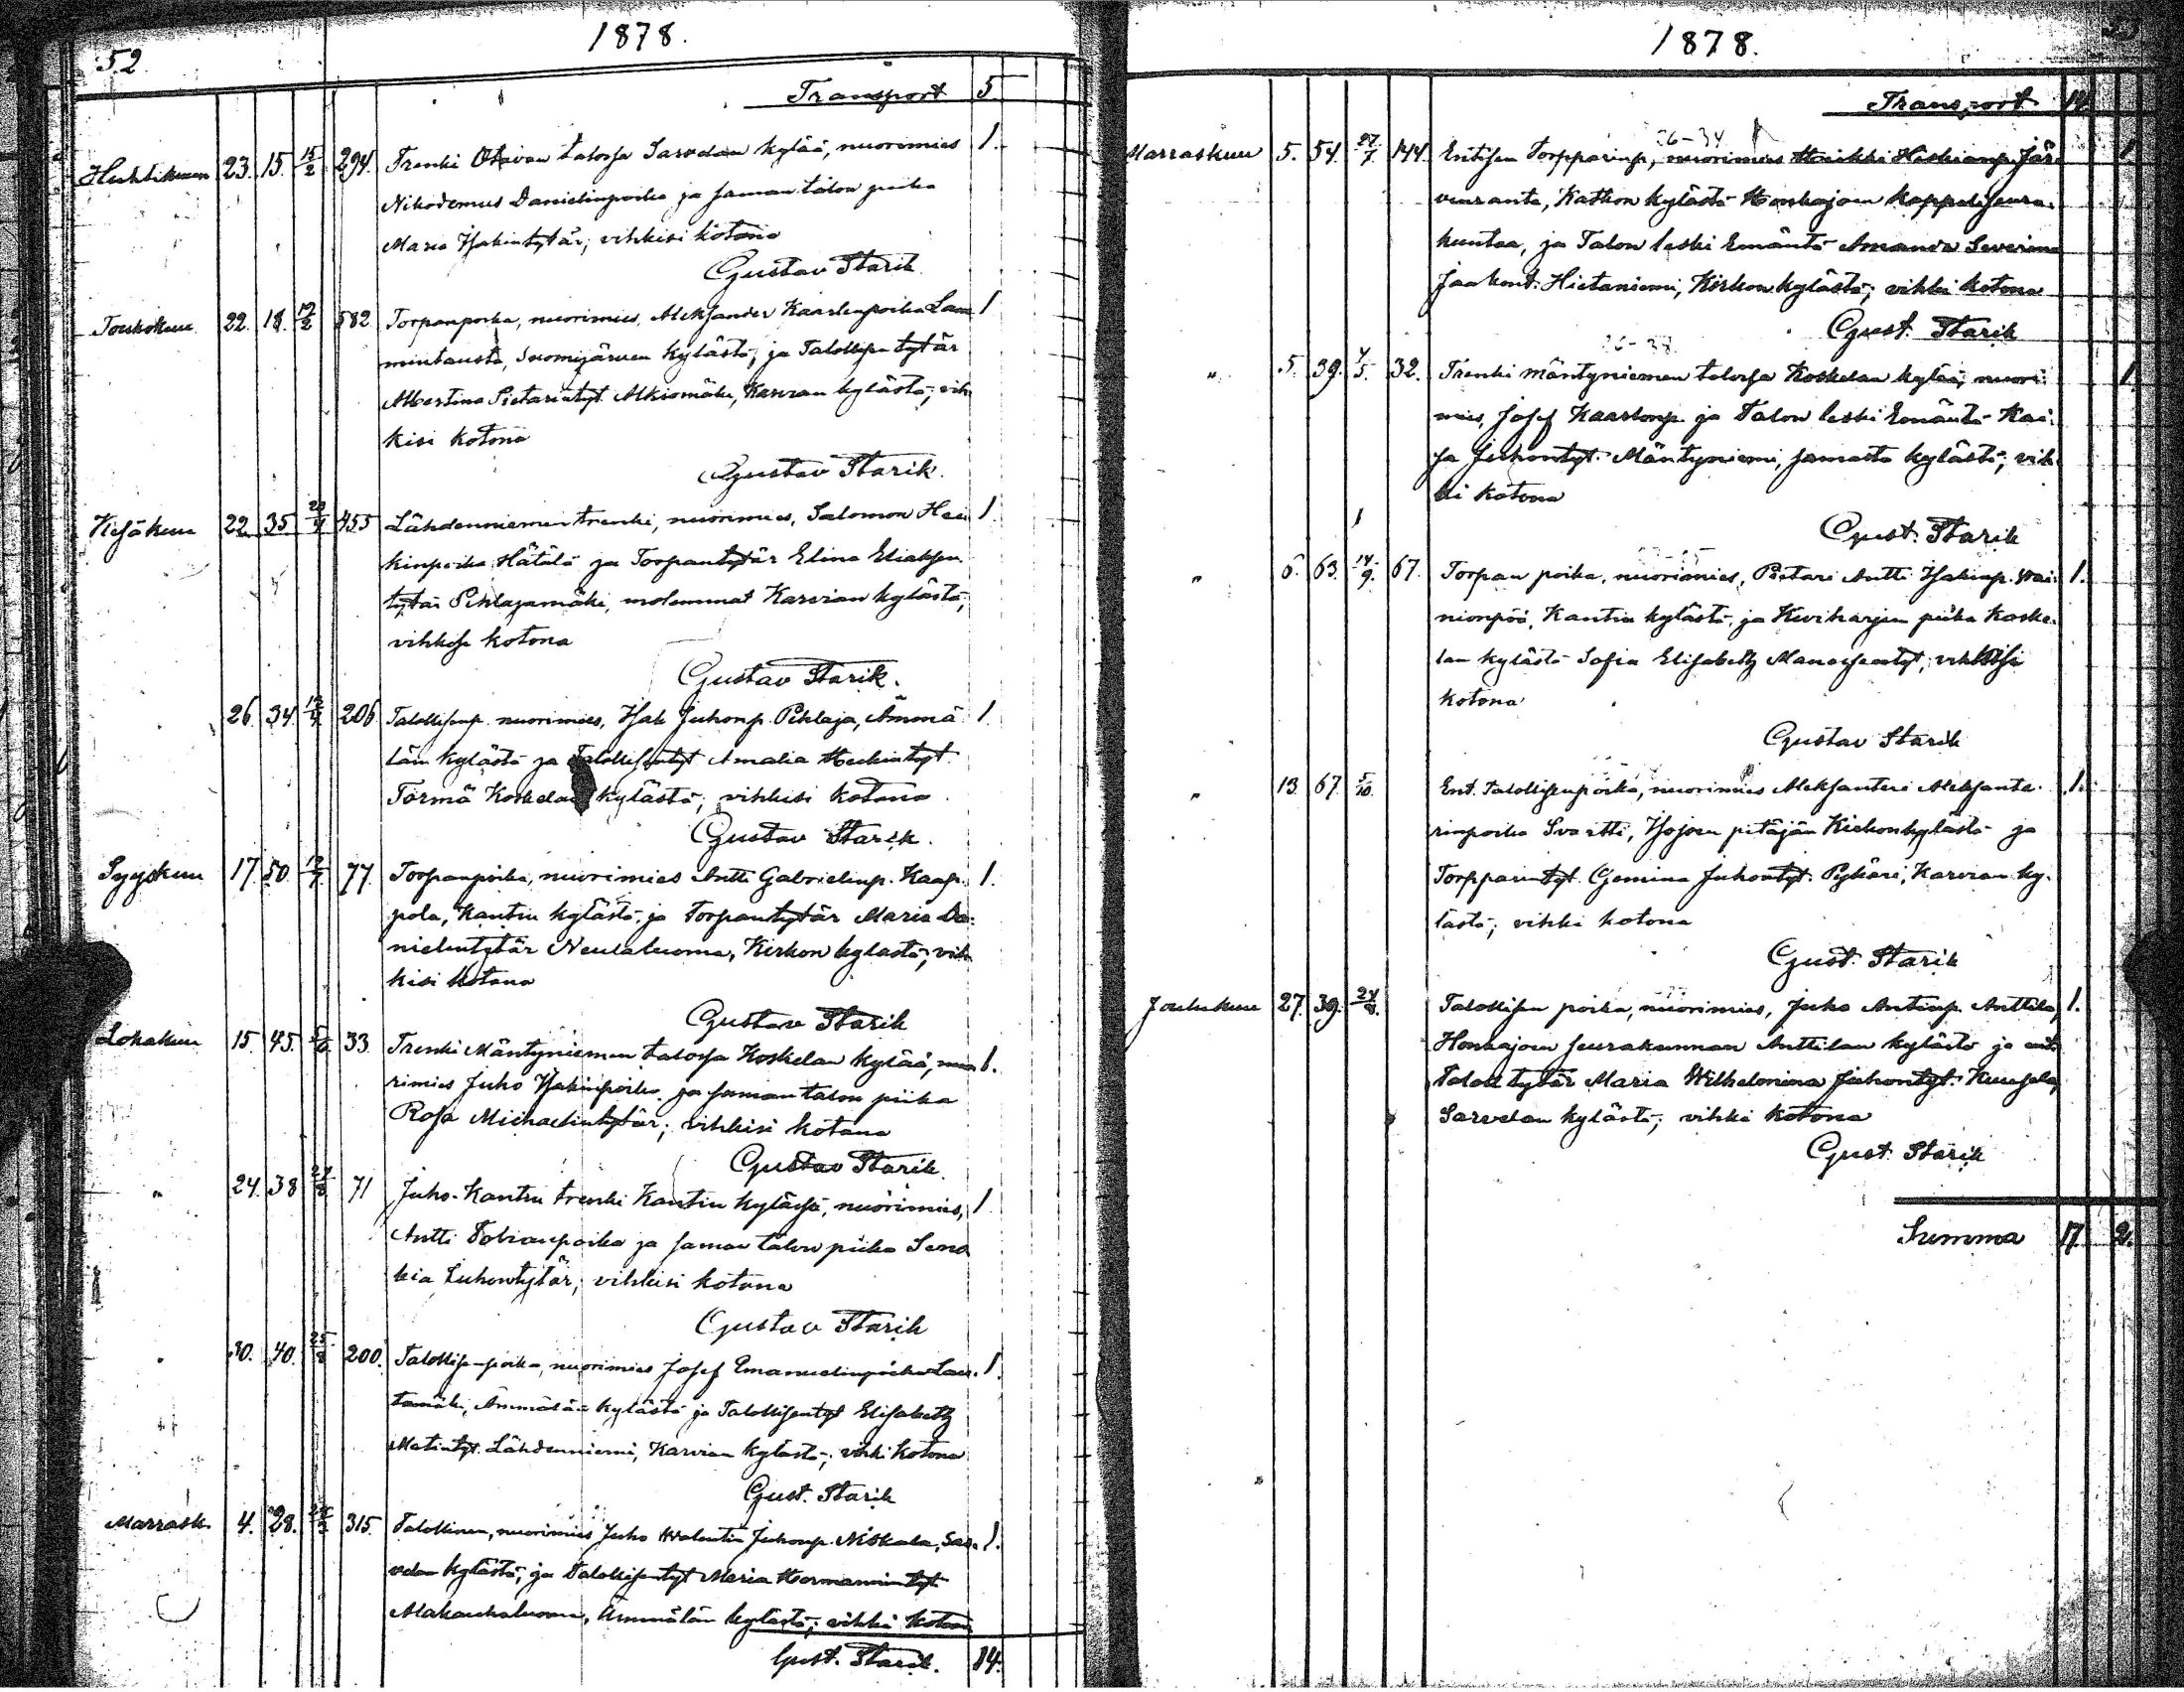 52
1878.
Transport 5
Huhtikuun 23. 15. 15/2 294. Trenki Otavan talossa Sarvelan kylää, nuorimies 1.
Nikodemus Danielinpoika ja saman talon piika
Maria Isakintytär; vihkisi kotona
Gustav Starik
Toukokuu 22. 18. 582 Torpanpoika, nuorimies, Aleksander Kaarlenpoika Lam 1
mintausta, Suomijärven kylästä, ja Talollisen tytär
Albertina Pietarintyt. Alkiomäki, Karvian kylästä; vih
kisi kotona
Gustav Starik.
Kesäkuu 22. 35. 455 Lähdenniemen trenki, nuorimies, Salomon Hei 1.
kinpoika Hätälä ja Torpantytär Elina Eliaksen
tytär Pihlajamäki, molemmat Karvian kylästä;
vihkisi kotona
Gustav Starik.
26. 34. 206 Talollisenp. nuorimies, Isak Juhonp. Pihlaja, Ämmä 1.
län kylästä ja Talollisentyt Amalia Heikintyt.
Törmä Koskelan kylästä; vihkisi kotona
Gustav Starik.
Syyskuu 17. 50 77. Torpanpoika, nuorimies Antti Gabrielinp. Kaap. 1.
pola, Kantin kylästä, ja Torpantytär Maria Da:
nielintytär Neulaluoma, Kirkon kylästä; vih
kisi kotona
Gustav Starik
Lokakuu 15. 45. 33. Trenki Mäntyniemen talossa Koskelan kylää, nuo 1.
rimies Juho Isakinpoika ja saman talon piika
Rosa Michaelintytär; vihkisi kotona
Gustav Starik.
" 24. 38 71 Juho-Kantin trenki Kantin kylässä, nuorimies, 1
Antti Tobianpoika ja saman talon piika Sera
kia Juhontytär; vihkisi kotona
Gustav Starik
30. 40. 25/8 200. Talollisenpoika, nuorimies Josef Emanuelinpoika Lau. 1.
tamäki, Ämmälän kylästä ja Talollisentyt Elisabeth
Matintyt. Lähdenniemi, Karvian kylästä; vihki kotona
Gust. Starik
Marrask. 4. 28. 315. Talollinen, nuorimies Juho Walentin Juhonp. Niskala, Sar. 1.
velan kylästä; ja Talollisentyt Maria Hermannintyt
Alakauhaluoma, Ämmälän kylästä; vihki kotona
Gust. Starik. 14.
1878.
Transport 14.
26-34
Marraskuu 5. 54. 27/7 144 Entisen Torpparinp., nuorimies Heikki Heikinp. Jär 1.
venranta, Katkon kylästä Honkajoen kappeliseura.
kuntaa, ja Talon leski Emäntä Amanda Severina
Jaakont. Hietaniemi, Kirkon kylästä; vihki kotona
Gust. Starik
" 5. 39. 4/5. 32. Trenki Mäntyniemen talossa Koskelan kylää, nuori: 1.
mies, Josef Kaarlonp. ja Talon leski Emäntä Kai:
sa Juhontyt. Mäntyniemi, samasta kylästä; vih
ki kotona
Gust. Starik
" 6. 63. 14/9. 67. Torpan poika, nuorimies, Pietari Antti Isakinp. Wai: 1.
nionpää, Kantin kylästä, ja Kiviharjun piika Koske.
lan kylästä Sofia Elisabeth Manassentyt; vihkisi
kotona
Gustav Starik
" 13 67. 5/10. Ent. Talollisenpoika, nuorimies Aleksanteri Aleksante. 1.
rinpoika Svartti, Isojoen pitäjän Kirkonkylästä ja
Torpparintyt. Gemina Juhontyt. Pykäri, Karvian ky.
lästä; vihki kotona
Gust. Starik
Joulukuu 27. 39. 24/8. Talollisen poika, nuorimies, Juho Antinp. Anttila, 1.
Honkajoen seurakunnan Anttilan kylästä ja ent.
Talon tytär Maria Wilhelmina Juhontyt. Kuusela,
Sarvelan kylästä; vihki kotona
Gust. Starik
Summa 17. 2.